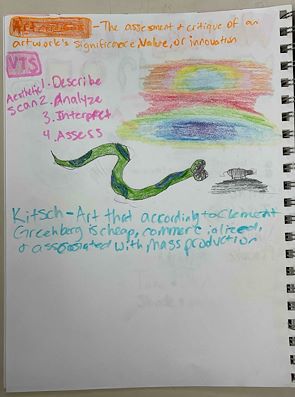 Art Criticism - The assesment & critique of an
artwork's significance, Nature, or innovation
VTS
Aesthetic
scan
1. Describe
2. Analyze
3. Interpret
4. Assess
Kitsch - Art that according to Clement
Greenberg is cheap, commercialized,
& associated with mass production